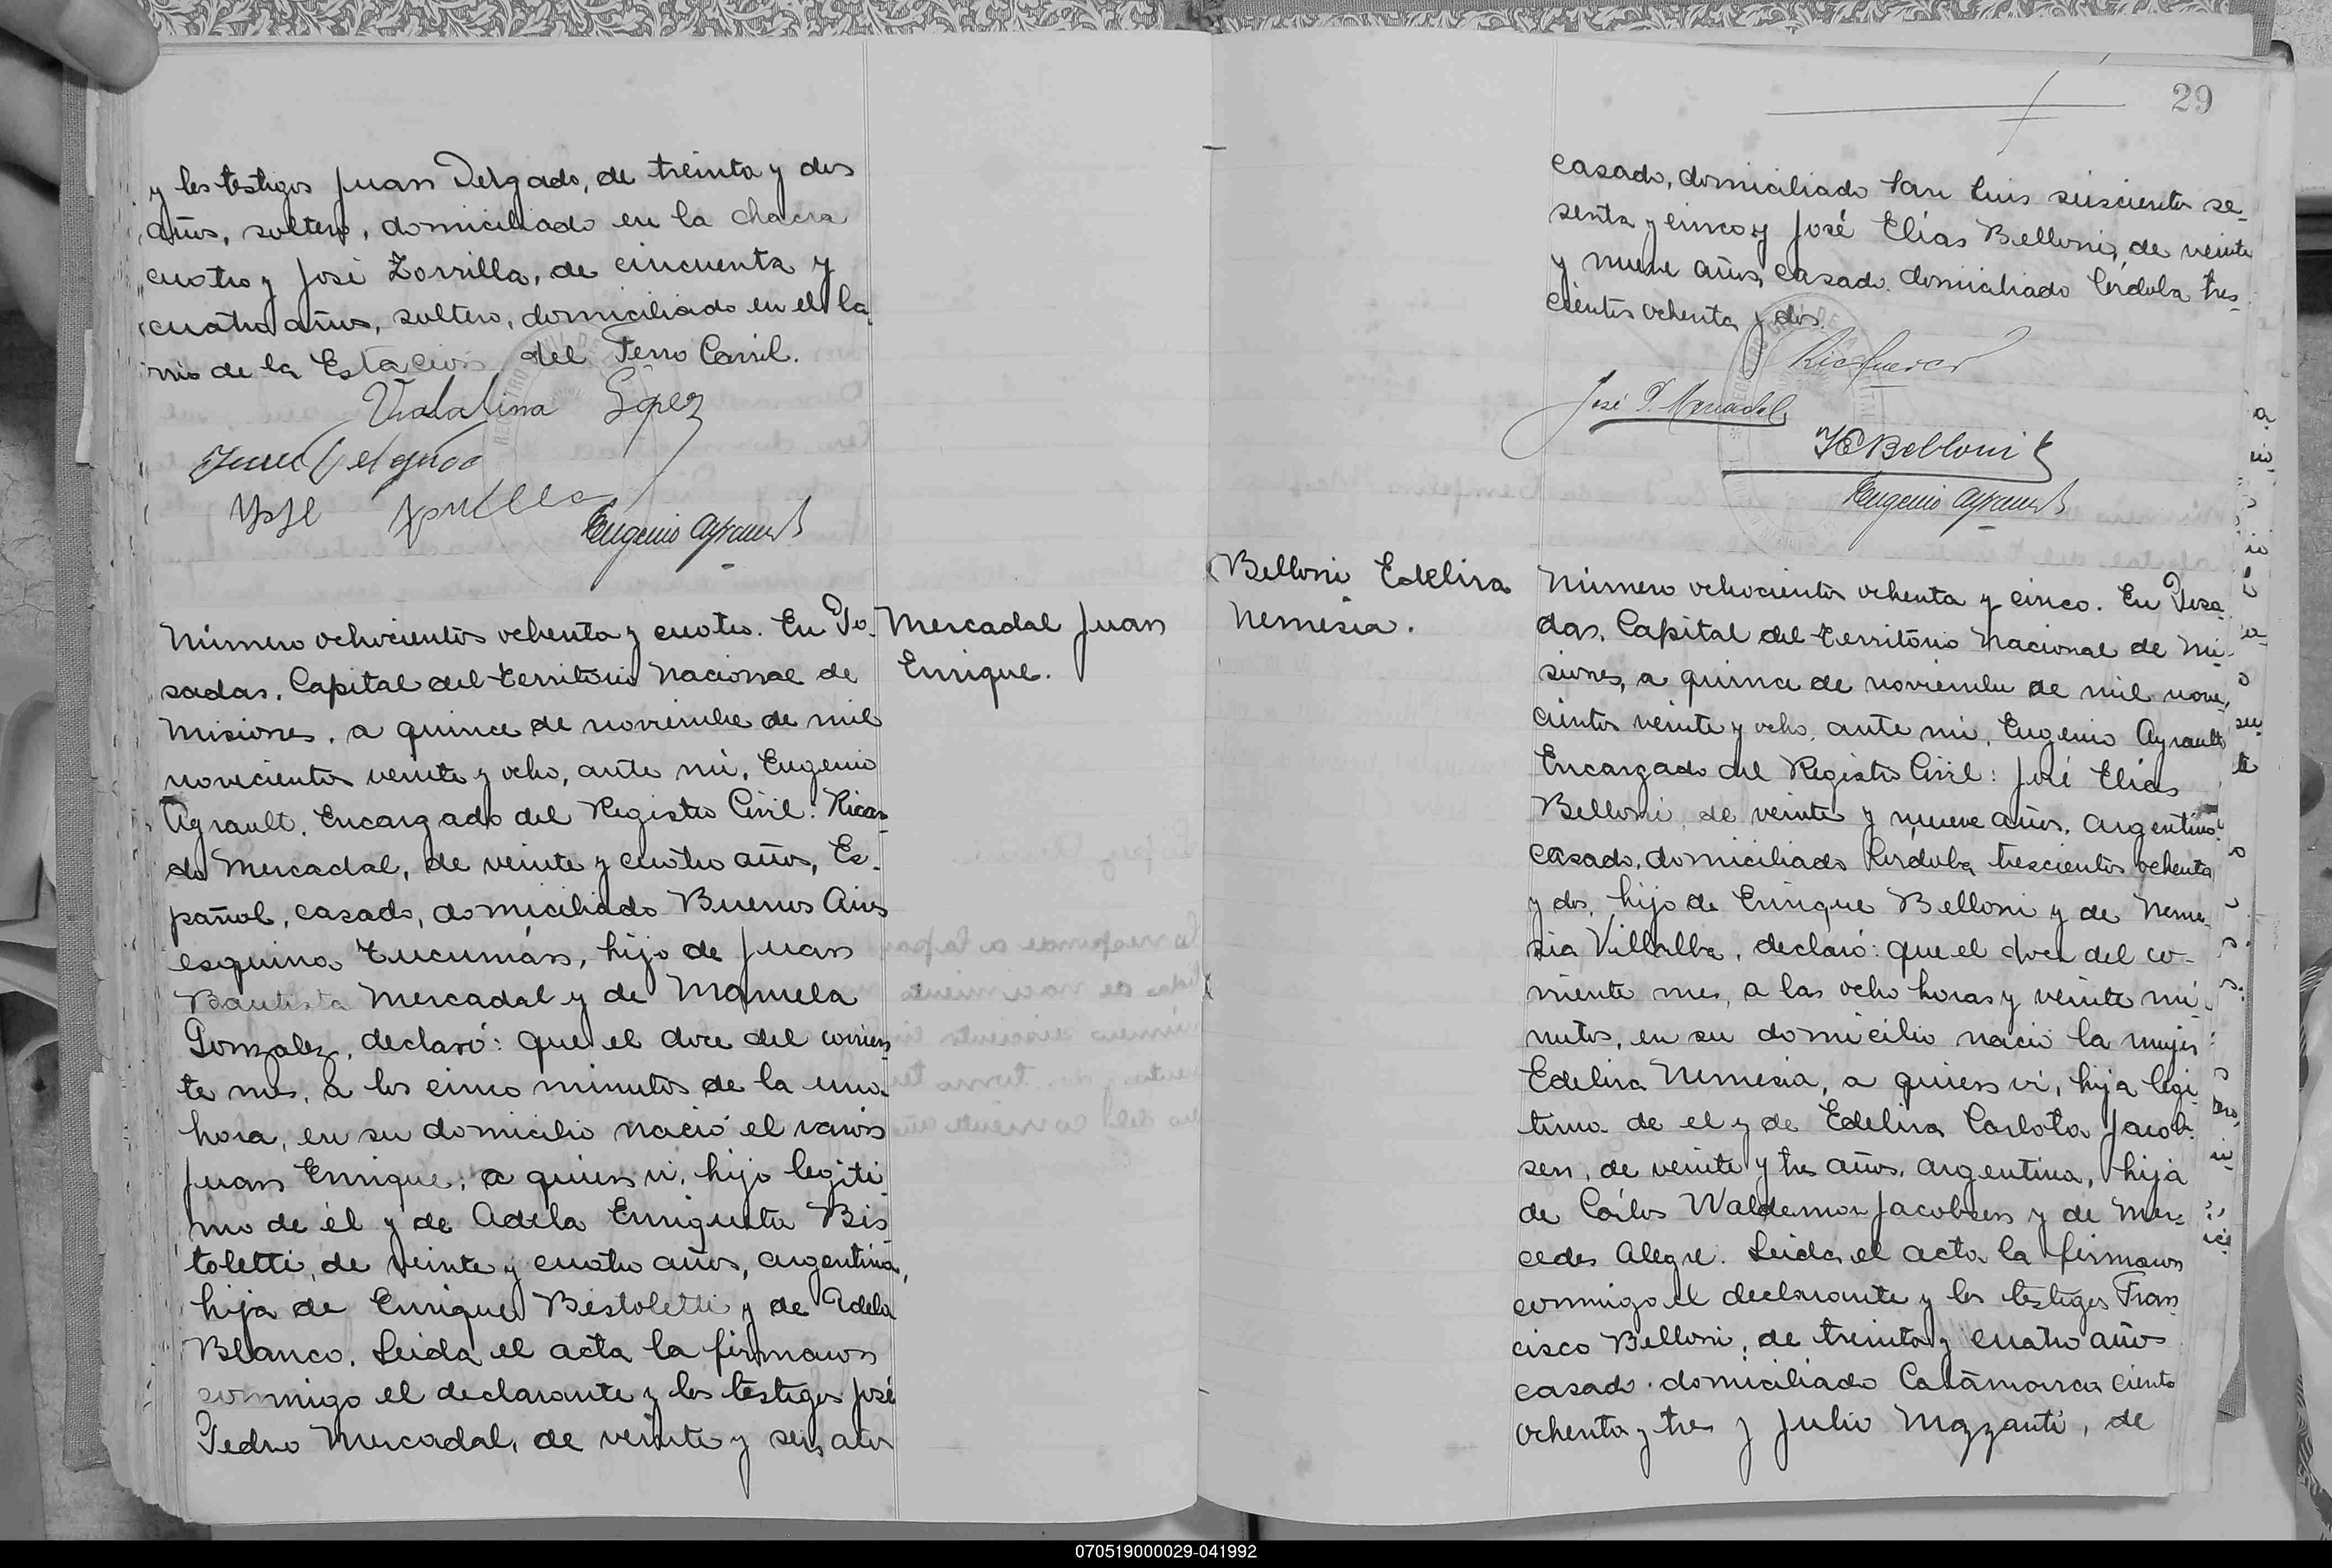 y los testigos Juan Delgado, de treinta y dos
años, soltero, domiciliado en la chacra
cuatro y José Zorrilla, de cincuenta y
cuatro años, soltero, domiciliado en el ba
rrio de la Estación del Ferro Carril.
López
Eugenio Ayrault
Número ochocientos ochenta y cuatro. En Po-
sadas, Capital del territorio Nacional de
Misiones, a quince de noviembre de mil
novecientos veinte y ocho, ante mí, Eugenio
Ayrault, Encargado del Registro Civil: Ricar-
do Mercadal, de veinte y cuatro años, Es-
pañol, casado, domiciliado Buenos Aires
esquina Tucumán, hijo de Juan
Bautista Mercadal y de Manuela
Gonzalez, declaró: que el doce del corrien
te mes, a los cinco minutos de la una
hora, en su domicilio nació el varón
Juan Enrique, a quien vi, hijo legiti
mo de él y de Adela Enriqueta Bis
toletti, de veinte y cuatro años, argentina,
hija de Enrique Bistoletti y de Adela
Blanco. Leida el acta la firmaron
conmigo el declarante y los testigos José
Pedro Mercadal, de veinte y seis años
Mercadal Juan
Enrique.
29
casado, domiciliado San Luis seiscientos se-
senta y cinco y José Elías Belloni, de veinte
y nueve años, casado, domiciliado Córdoba tres-
cientos ochenta y dos.
José P. Mercadal
J E Belloni
Eugenio Ayrault
Belloni Edelira
Nemesia.
Número ochocientos ochenta y cinco. En Posa
das, Capital del territorio Nacional de Mi-
siones, a quince de noviembre de mil nove-
cientos veinte y ocho, ante mi, Eugenio Ayrault
Encargado del Registro Civil: José Elías
Belloni, de veinte y nueve años, argentino
casado, domiciliado Córdoba trescientos ochenta
y dos, hijo de Enrique Belloni y de Neme-
sia Villalba, declaró: que el doce del co-
rriente mes, a las ocho horas y veinte mi-
nutos, en su domicilio nació la mujer
Edelira Nemesia, a quien vi, hija legi
tima de el y de Edelira Carlota Jacob-
sen, de veinte y tres años, argentina, hija
de Cárlos Waldemar Jacobsen y de Mer-
cedes Alegre. Leida el acta la firmaron
conmigo el declarante y los testigos Fran
cisco Belloni, de treinta y cuatro años
casado, domiciliado Catamarca ciento
ochenta y tres y Julio Mazzanti, de
070519000029-041992